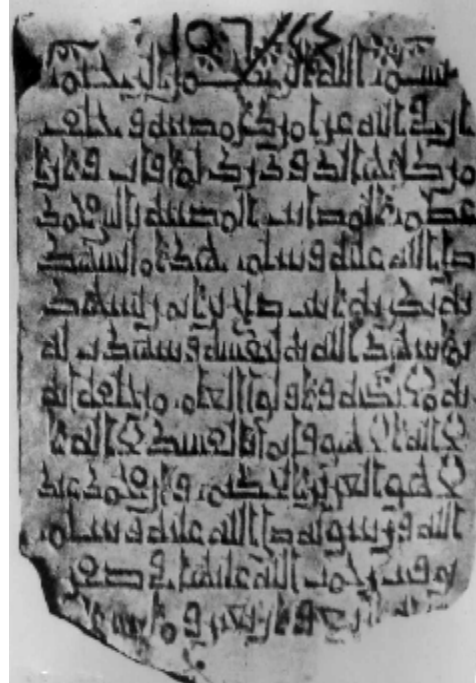 بسم الله الرحمن الرحيم
ان في الله عزا من كل مصيبة وخلف
من كل هالك ودرك لما فات وان ا
عظم المصائب المصيبة بالنبي محمد
صلى الله عليه وسلم هذا ما تشهد
به تشهد
بما شهد الله به لنفسه وشهدت له
به ملائكته واولوا العلم من خلقه انه
لا اله الا هو قائما بالقسط لا اله ا
لا هو العزيز الحكيم وان محمد عبد
الله ورسوله صلى الله عليه وسلم
توفيت رحمت الله عليها في صفر
اربع واربعين